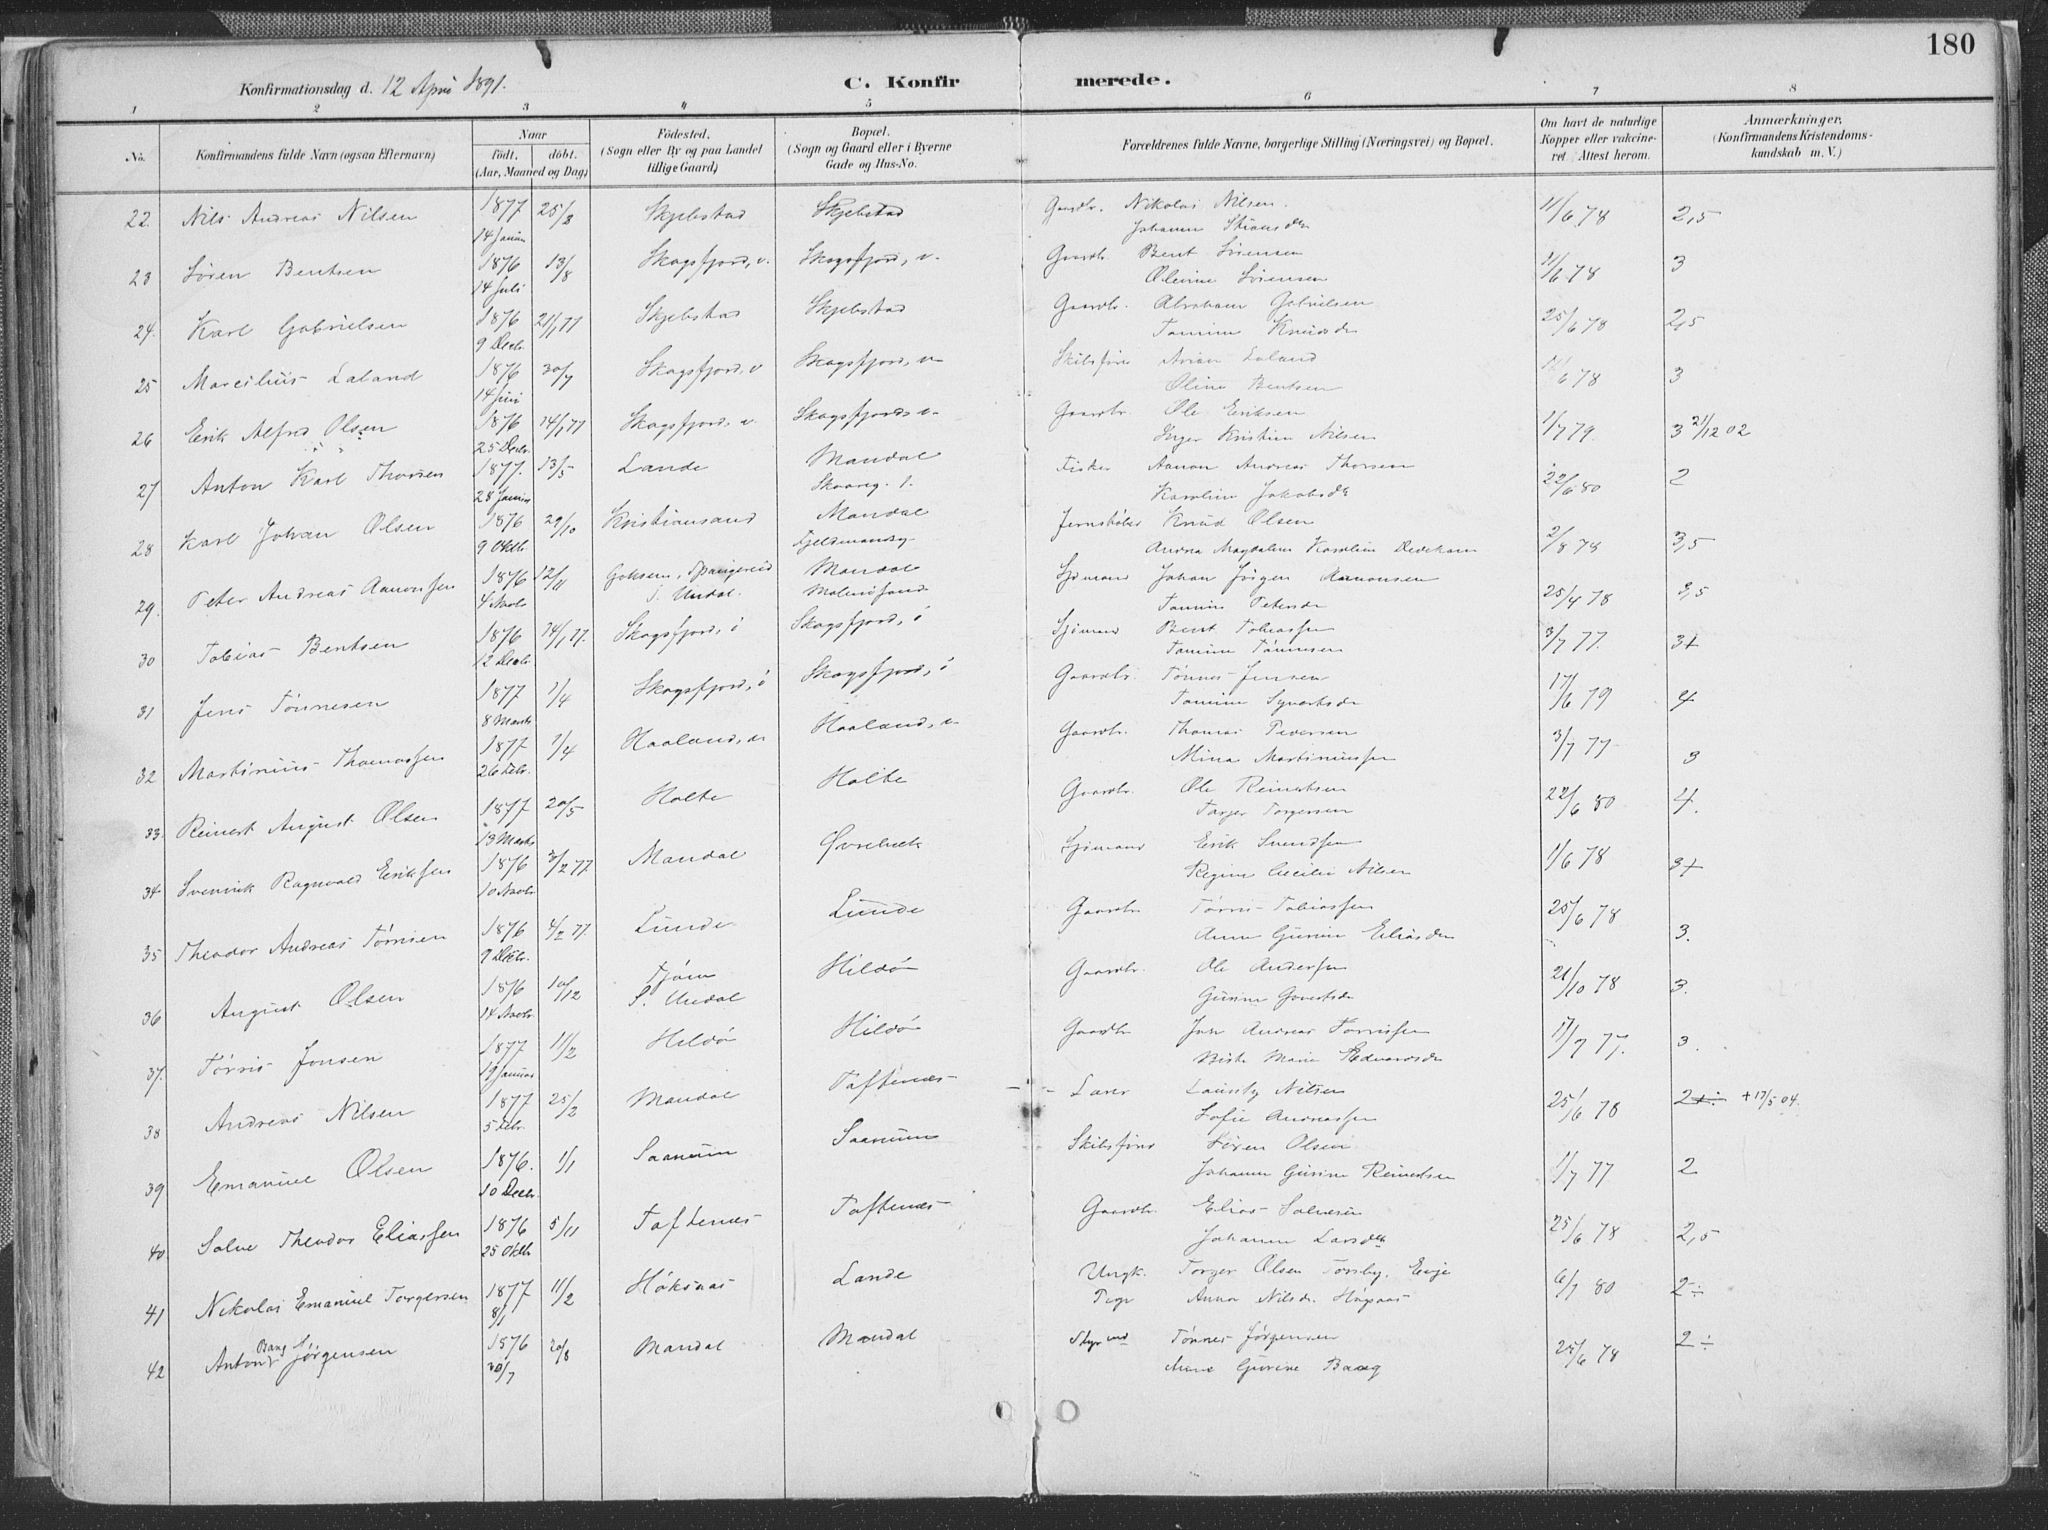 180
Konfirmationsdag d. 12 April 1891.
C. Konfirmerede.
1 2 3 4 5 6 7 8
No.
Konfirmandens fulde Navn (ogsaa Efternavn)
Naar
født, døbt.
(Aar, Maaned og Dag)
Fødested.
(Sogn eller By og paa Landet
tillige Gaard)
Bopæl.
(Sogn og Gaard eller i Byerne
Gade og Hus-No.
Forældrenes fulde Navne, borgerlige Stilling (Næringsvei) og Bopæl.
Om havt de naturlige
Kopper eller vakcine-
ret Attest herom.
Anmærkninger,
(Konfirmandens Kristendoms-
kundskab m. V.)
22. Nils Andreas Nilsen 1877 25/2 Skjebstad Skjebstad Gaardbr. Nikolai Nilsen. 11/6 78 2,5
14 Januar
23 Søren Bentsen 1876 13/8 Skogsfjord, v. Skogsfjord, v. Gaardbr. Bent Sørensen 11/6 78 3
14 Juli Olevine Sørensen
24. Karl Gabrielsen 1876 21/1 77 Skjebstad Skjebstad Gaardbr. Abraham Gabrielsen 25/6 78 2,5
9 Decbr. Tomine Knudsdr
25 Marcilius Laland 1876 30/7 Skogsfjord, v Skogsfjord, v Skibsfører Laland 11/6 78 3
14 Juni Oline Bentsen
26 Erik Alfred Olsen 1876 14/1 77 Skogsfjord, v. Skogsfjord, v. Gaardbr. Ole Eriksen 1/7 79. 3 21/12 02
25 Decbr. Inger Kristine Nilsen
27 Anton Karl Thorsen 1877. 13/5 Lande Mandal Fisker Aanon Andreas Thorsen 22/6 80 2
28 Januar Skaareg. 1. Karoline Jakobsdr
28 Karl Johan Olsen 1876 29/10 Kristiansand Mandal Jernstøber Knud Olsen 2/8 78 3,5
9 Oktbr. Andrea Magdalene Karoline Dedekam
29. Peter Andreas Aanonsen 1876 12/11 Spangereid Mandal Sjømand Johan Jørgen Aanonsen 25/4 78 3,5
4 Novbr. S. Undal. Malmøsund Tomine Petersdr
30 Tobias Bentsen 1876 14/1 77. Skogsfjord, ø Skogsfjord, ø Sjømand Bent Tobiassen 3/7 77. 3+
12 Decbr. Tomine Tønnesen
31 Jens Tønnesen 1877 1/4 Skogsfjord, ø Skogsfjord, ø Gaardbr. Tønnes Jensen 17/6 79 4
8 Marts Tomine Syvertsdr
32 Martinius Thomassen 1877 1/4 Haaland, v. Haaland, v. Gaardbr. Thomas Pedersen 3/7 77 3
26 Febr. Mina Martiniussen
33. Reinert August Olsen 1877 20/5 Holte Holte Gaardbr. Ole Reinertsen 22/6 80 4.
13 Marts Torger Torgersen
34 Ragnvald Eriksen 1876 3/2 77. Mandal Øvrebæk Sjømand Erik Svendsen 1/6 78 3+
10 Novbr. Regine Cecilie Nilsen
35 Theodor Andreas Tørrisen 1876 4/2 77. Lunde Lunde Gaardbr. Tørris Tobiassen 25/6 78 3.
9 Decbr. Anne Gurine Eliasdr
36 August Olsen 1876 10/12 Tjøm Hildø Gaardbr. Ole Andersen 21/10 78 3.
14 Novbr. S. Undal Gurine Govertsdr
37. Tørris Jonsen 1877 11/2 Hildø Hildø Gaardbr. Jon Andreas Tørrissen 17/7 77. 3.
19 Januar Marie Edvardsdr
38 Andreas Nilsen 1877 25/2 Mandal Toftenæs Nilsen 25/6 78 2 +17/5 04.
5 Febr. Sofie Andreassen
39 Emanuel Olsen 1876. 1/1 Saanum Saanum Skibsfører Søren Olsen 1/7 77 2
10 Decbr. Johanne Gurine Reinertsen
40 Salve Theodor Eliassen 1876 5/11 Toftenæs Toftenæs Gaardbr. Elias Salvesen 25/6 78 2,5
25 Oktbr. Johanne Larsdtr
41 Nikolai Emanuel Torgersen 1877 11/2 Høksaas Lande Ungk. Torger Olsen Torsby, Evje 6/7 80 2÷
8/1 Pige Anna Nilsdr. Høgsaas
42 Anton Bang Jørgensen 1876 20/8 Mandal Mandal Styrmd Tønnes Jørgensen 25/6 78 2÷
20/7 Anne Gurine Bang